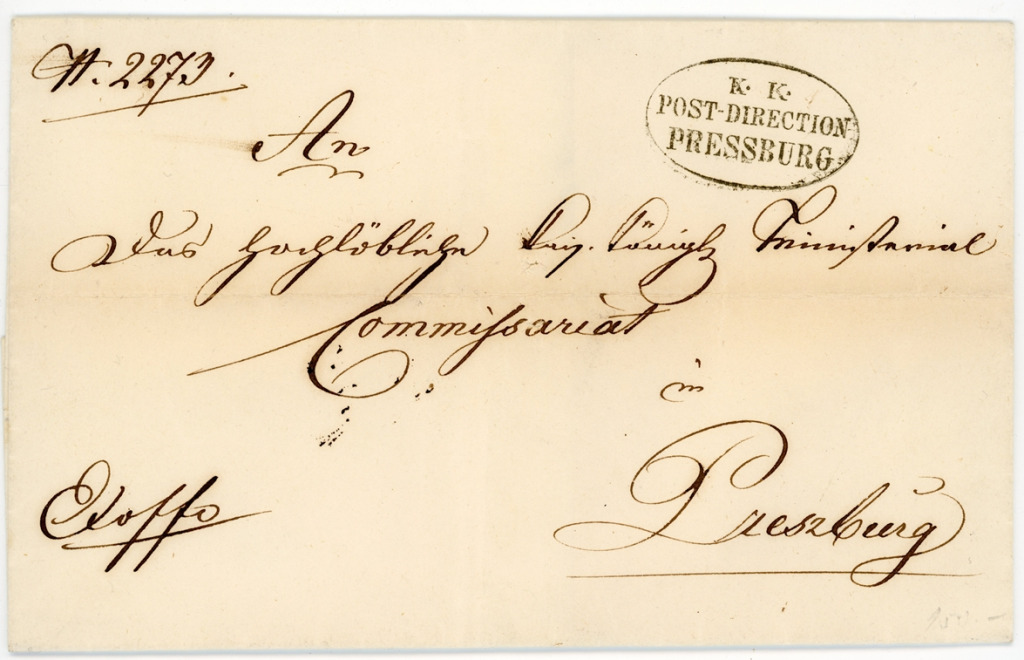 N. 2273.
K. K.
POST-DIRECTION
PRESSBURG
An
Das hochlöbliche kais. königl. Ministerial
Commissariat
in
Preszburg
Exoffo